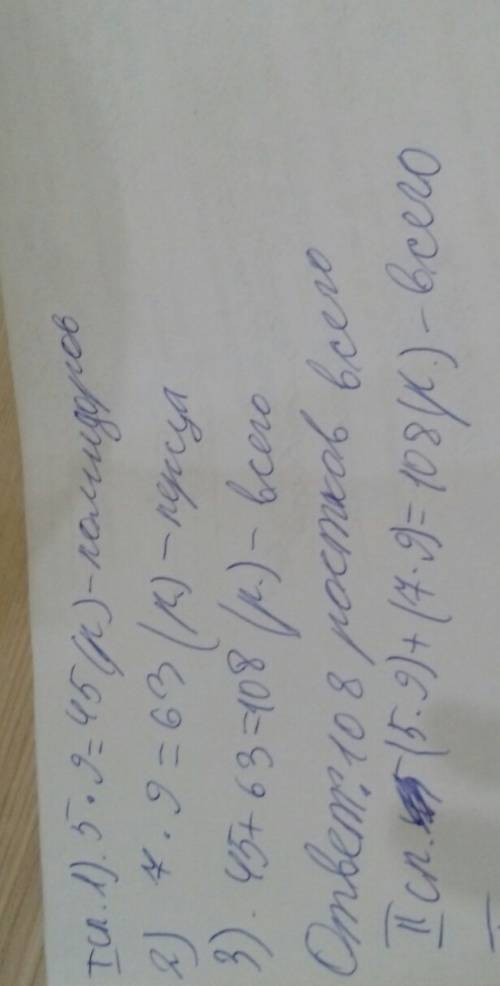 I сп. 1). 5 · 9 = 45 (р) - помидоров
2) 7 · 9 = 63 (р) - перца
3). 45 + 63 = 108 (р.) - всего
Ответ: 108 ростков всего
II сп. (5·9) + (7·9) = 108 (р.) - всего